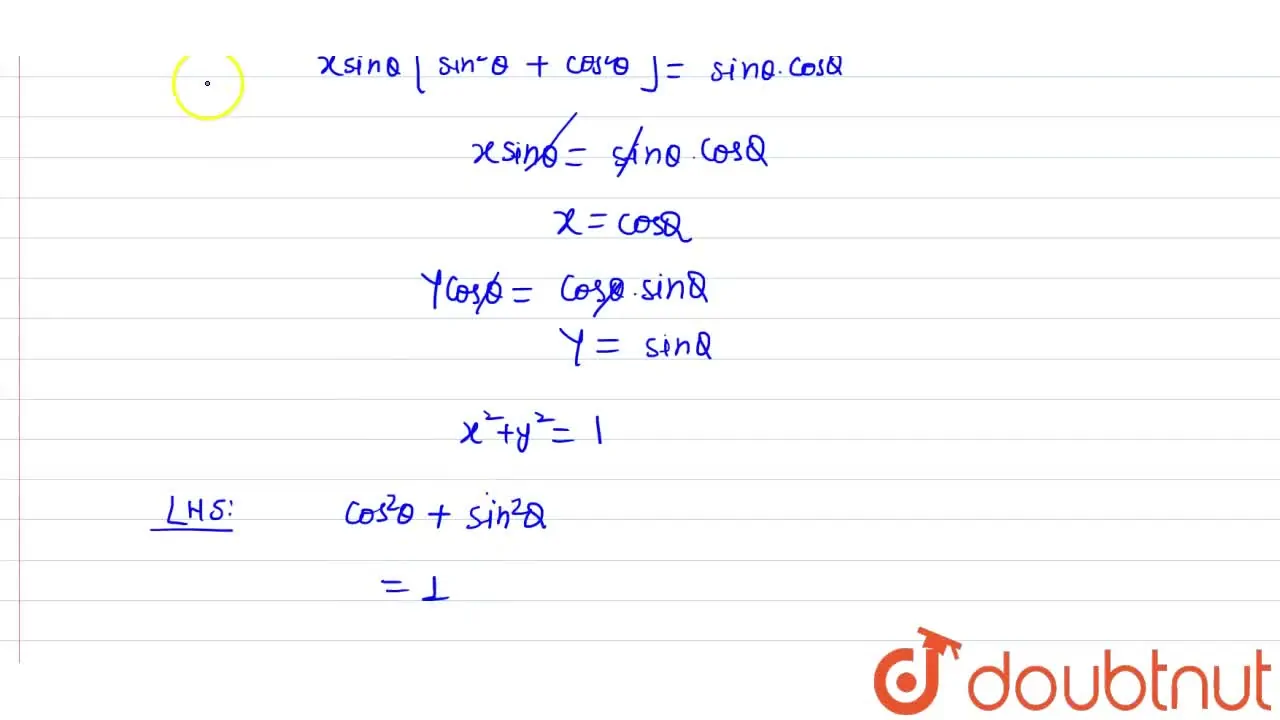 xsinθ[sin²θ + cos²θ] = sinθ.cosθ
xsinθ = sinθ.cosθ
x = cosθ
Ycosθ = cosθ.sinθ
Y = sinθ
x²+y² = 1
LHS: cos²θ + sin²θ
= 1
doubtnut